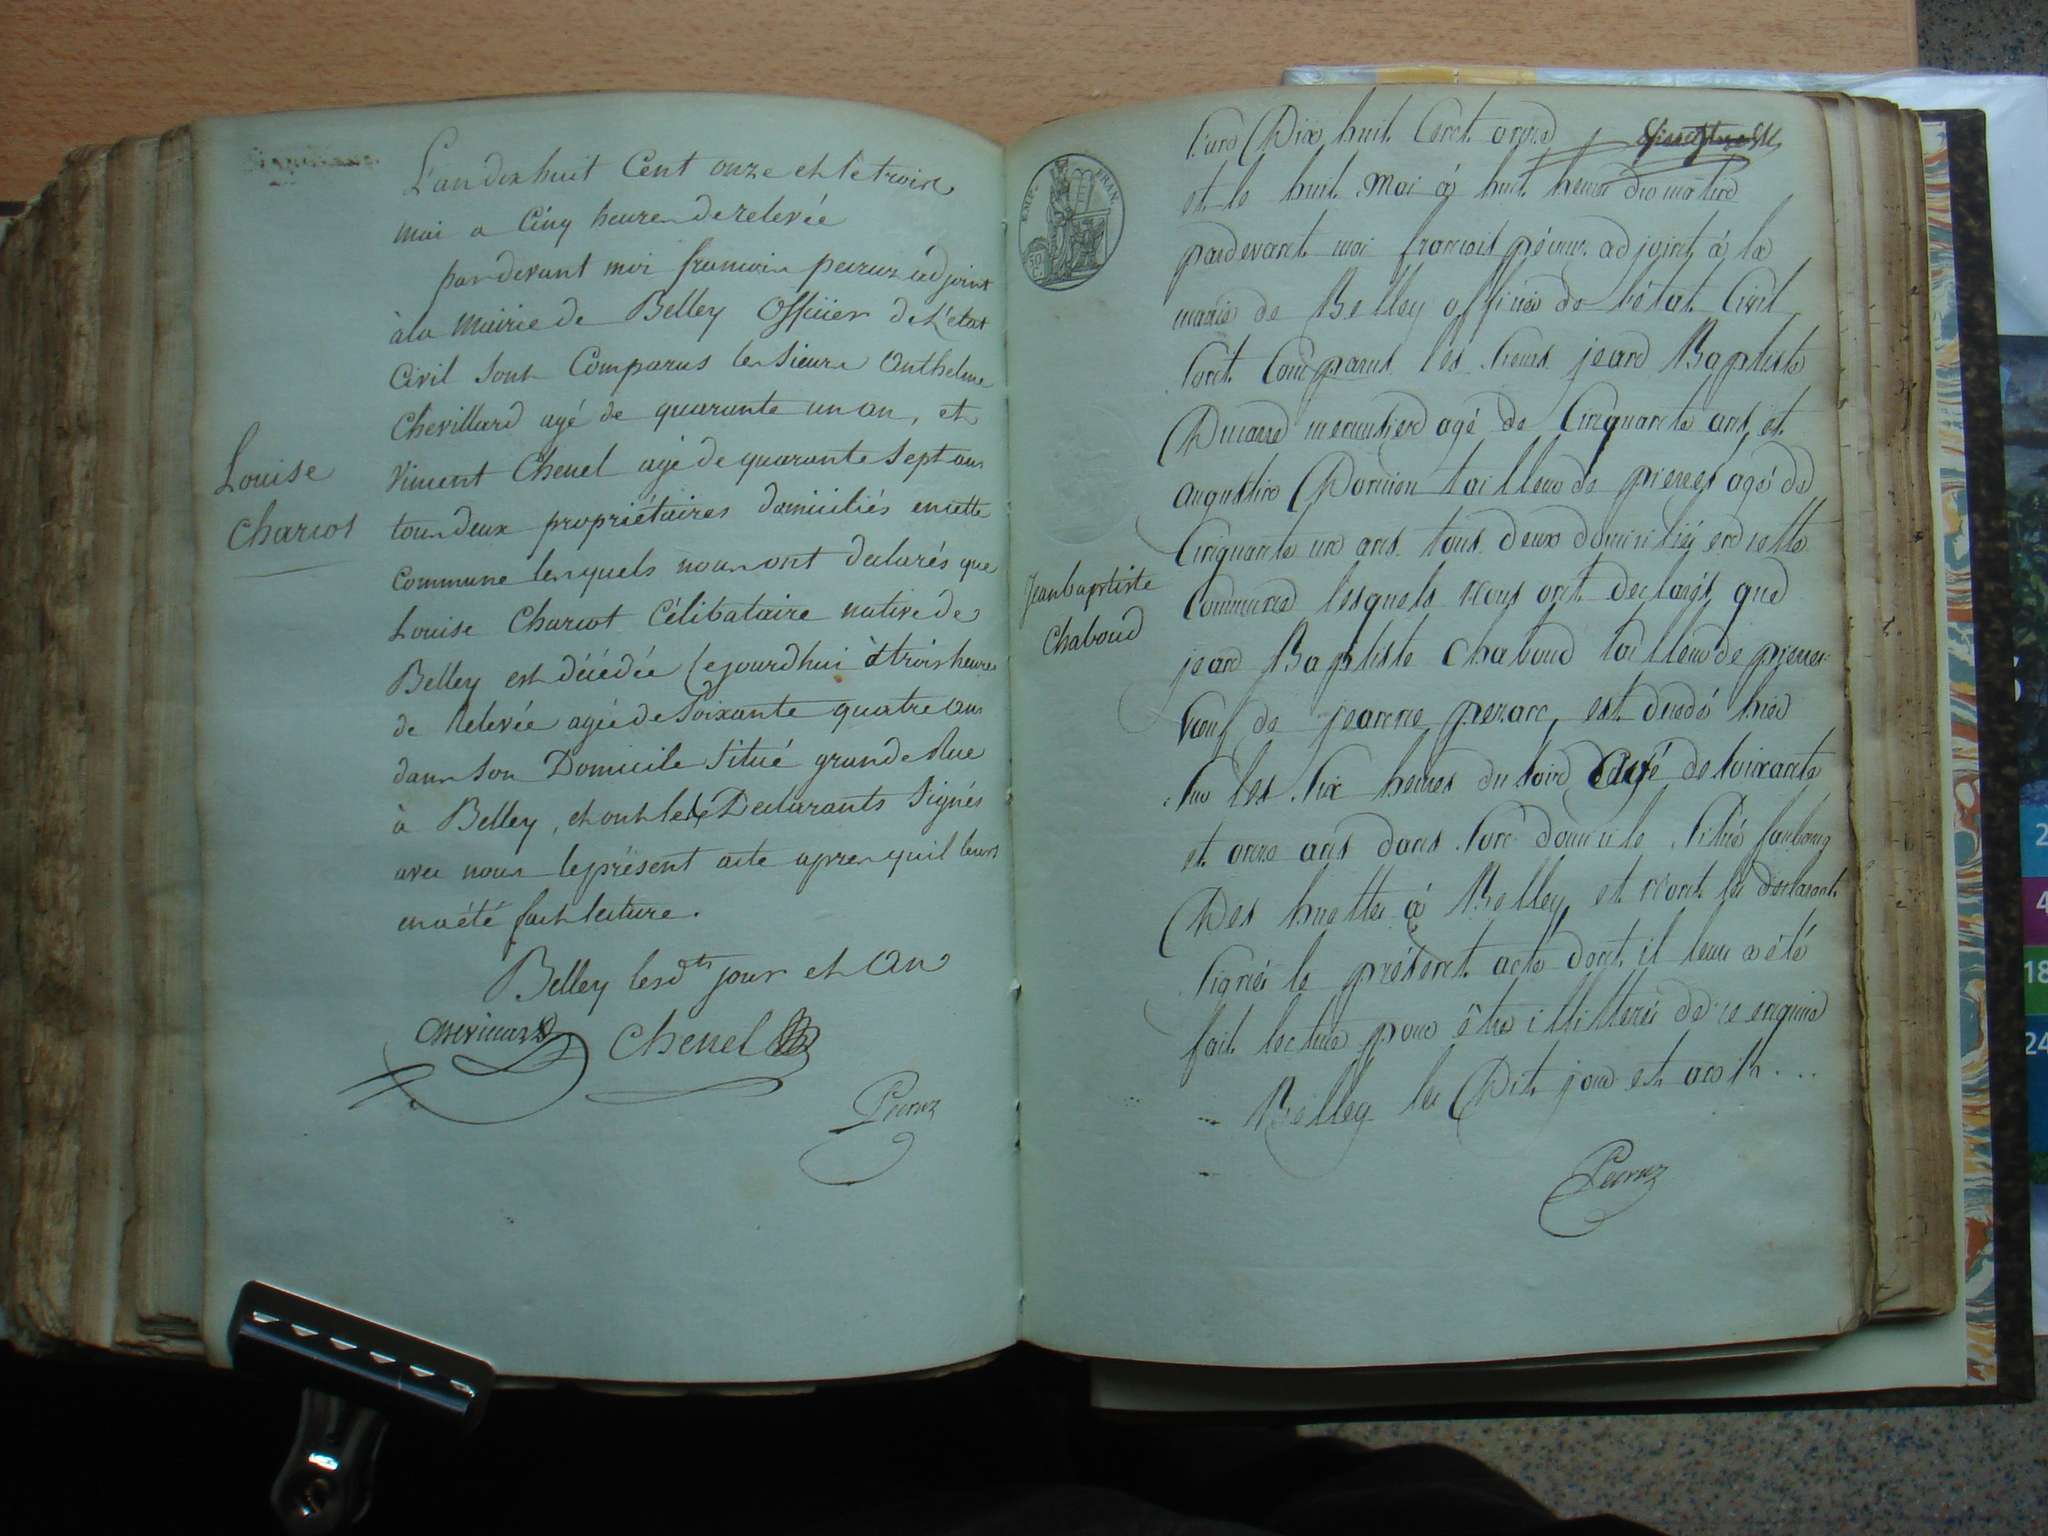 Louise
Charcot
L'an dix huit Cent onze et le trois
mai a Cinq heures de relevée
pardevant moi francois pecruz adjoint
à la Mairie de Belley Officier de L'etat
Civil sont Comparus les Sieurs Anthelme
Chevillard agé de quarante un an, et
Vincent Chenel agé de quarante sept ans
tous deux propriétaires domiciliés en cette
commune lesquels nous ont declarés que
Louise Charcot Célibataire native de
Belley est décédée cejourdhui à trois heures
de Relevée agée de Soixante quatre ans
dans son Domicile Situé grande Rue
à Belley, et ont les Declarants Signés
avec nous le présent acte apres quil leurs
en a été fait lecture.
Belley lesdts jour et An
Chevillard
Chenel
Pecruz
EMP. FRAN.
Jean baptiste
Chaboud
L'an Dix huit Cent onze
et le huit Mai à huit heures du matin
pardevant moi francois pécruz adjoint à la
mairie de Belley officier de l'état Civil
sont Comparus les sieurs jean Baptiste
menuisier agé de Cinquante ans, et
augustin tailleur de pierres agé de
Cinquante un ans tous deux domicilié en cette
Commune lesquels nous ont declarés que
jean Baptiste Chaboud tailleur de pierres
veuf de jeanne est décédé hier
sur les six heures du soir agé de soixante
et onze ans dans son domicile situé faubourg
Des à Belley, et n'ont les declarants
signés le présent acte dont il leur a été
fait lecture pour être illitterés de ce enquis
Belley les Dit jour et an
Pecruz
2
4
18
24